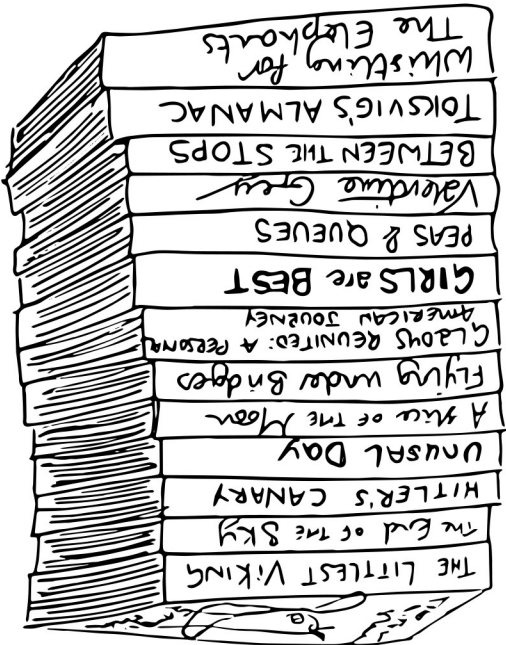 THE LITTLEST VIKING
The End OF THE SKY
HITLER'S CANARY
UNUSAL DAY
A slice OF THE Moon
Flying under Bridges
GLADYS REUNITED: A PERSONAL
AMERICAN JOURNEY
GIRLS are BEST
PEAS & QUEUES
Valentine Grey
BETWEEN THE STOPS
TOKSVIG'S ALMANAC
Whistling for
The Elephants